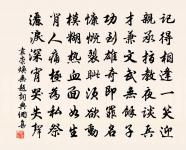 記得相逢一笑迎
親承指授夜談兵
才兼文武無餘子
功到雄奇即罪名
慷慨裂眦須欲動
模糊熱血面如生
背人痛極為私祭
灑淚深宵哭失聲
袁崇煥無題詞典網書